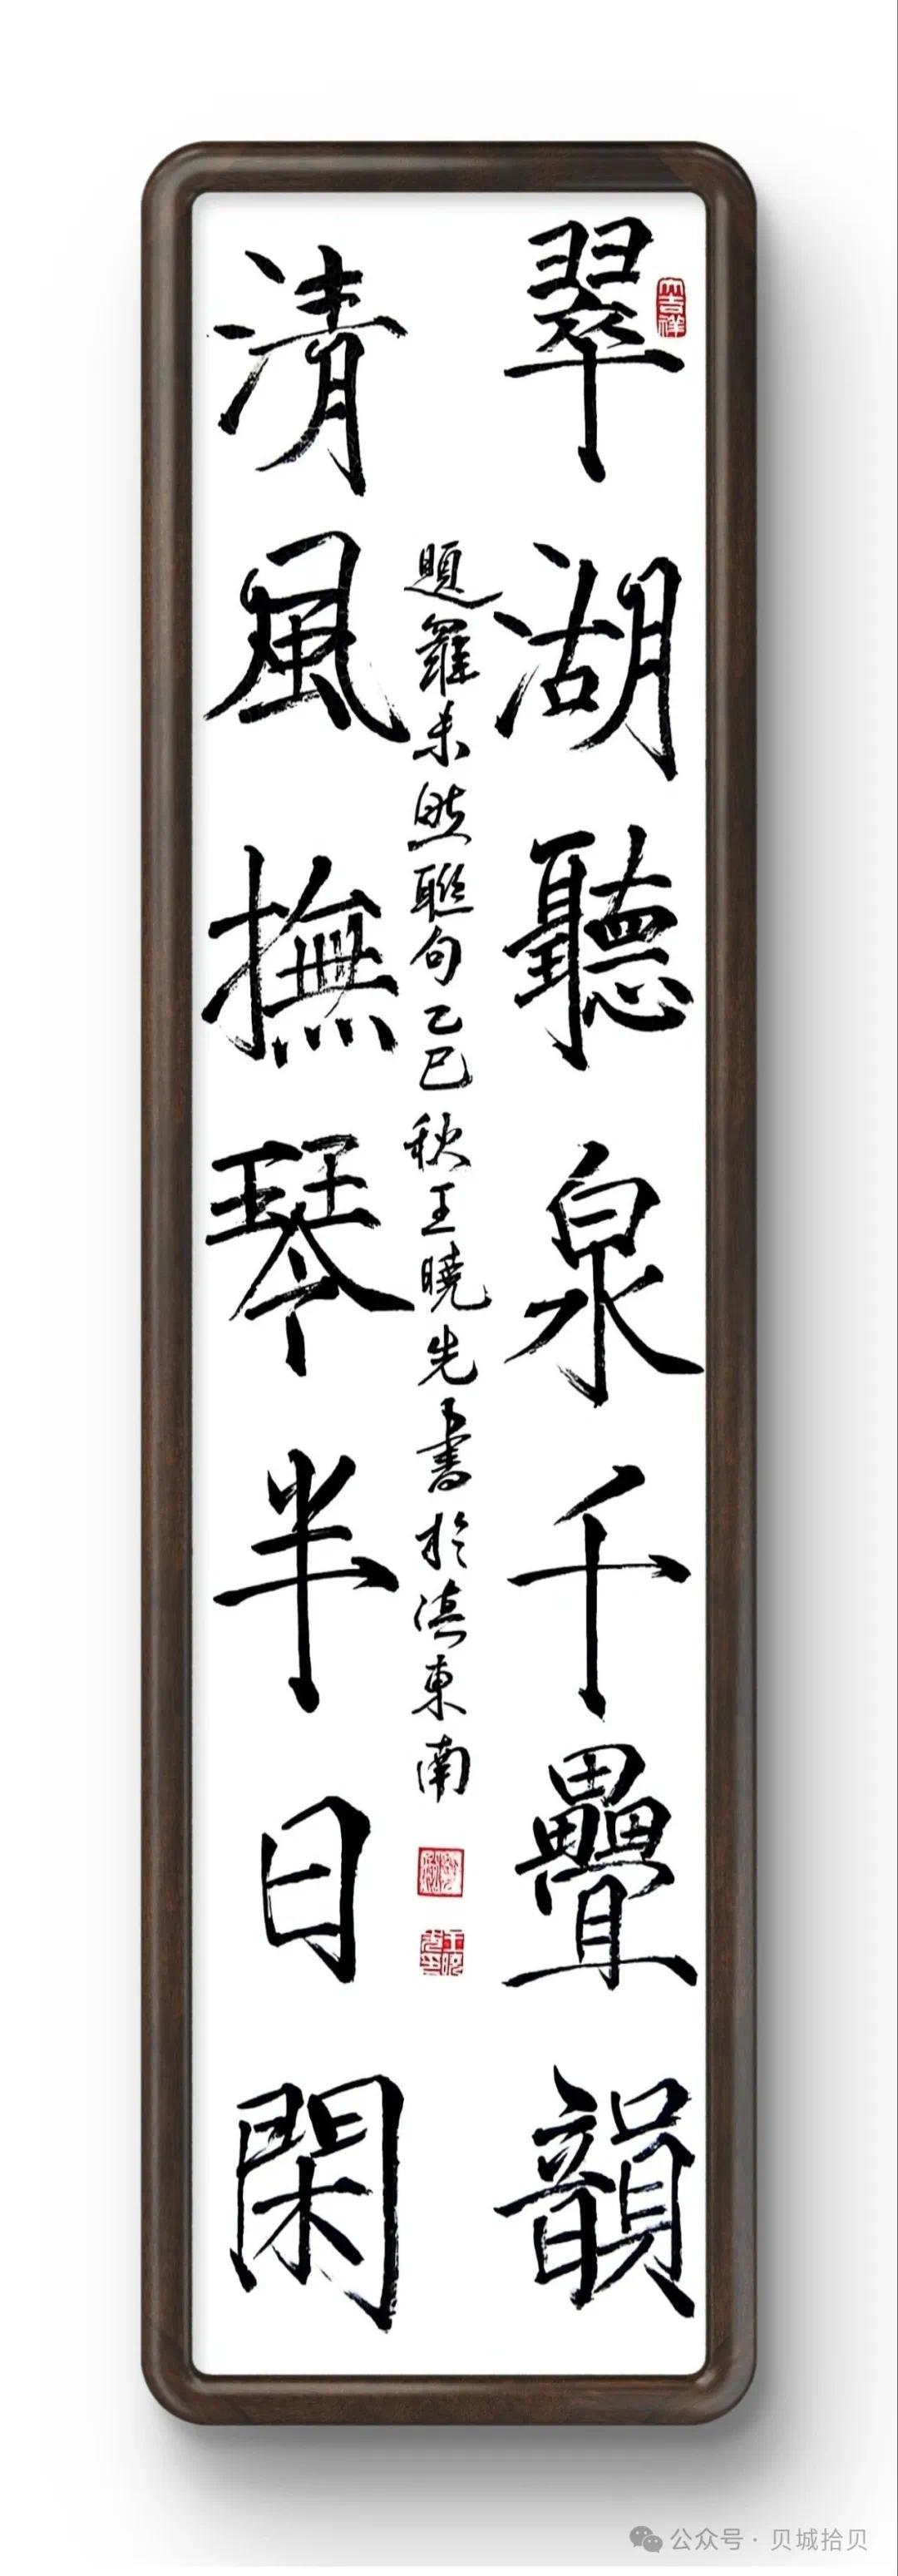 翠湖聽泉千疊韻
大吉祥
清風撫琴半日閑
題羅未然聯句乙巳秋王曉先書於滇東南
公众号·贝城拾贝